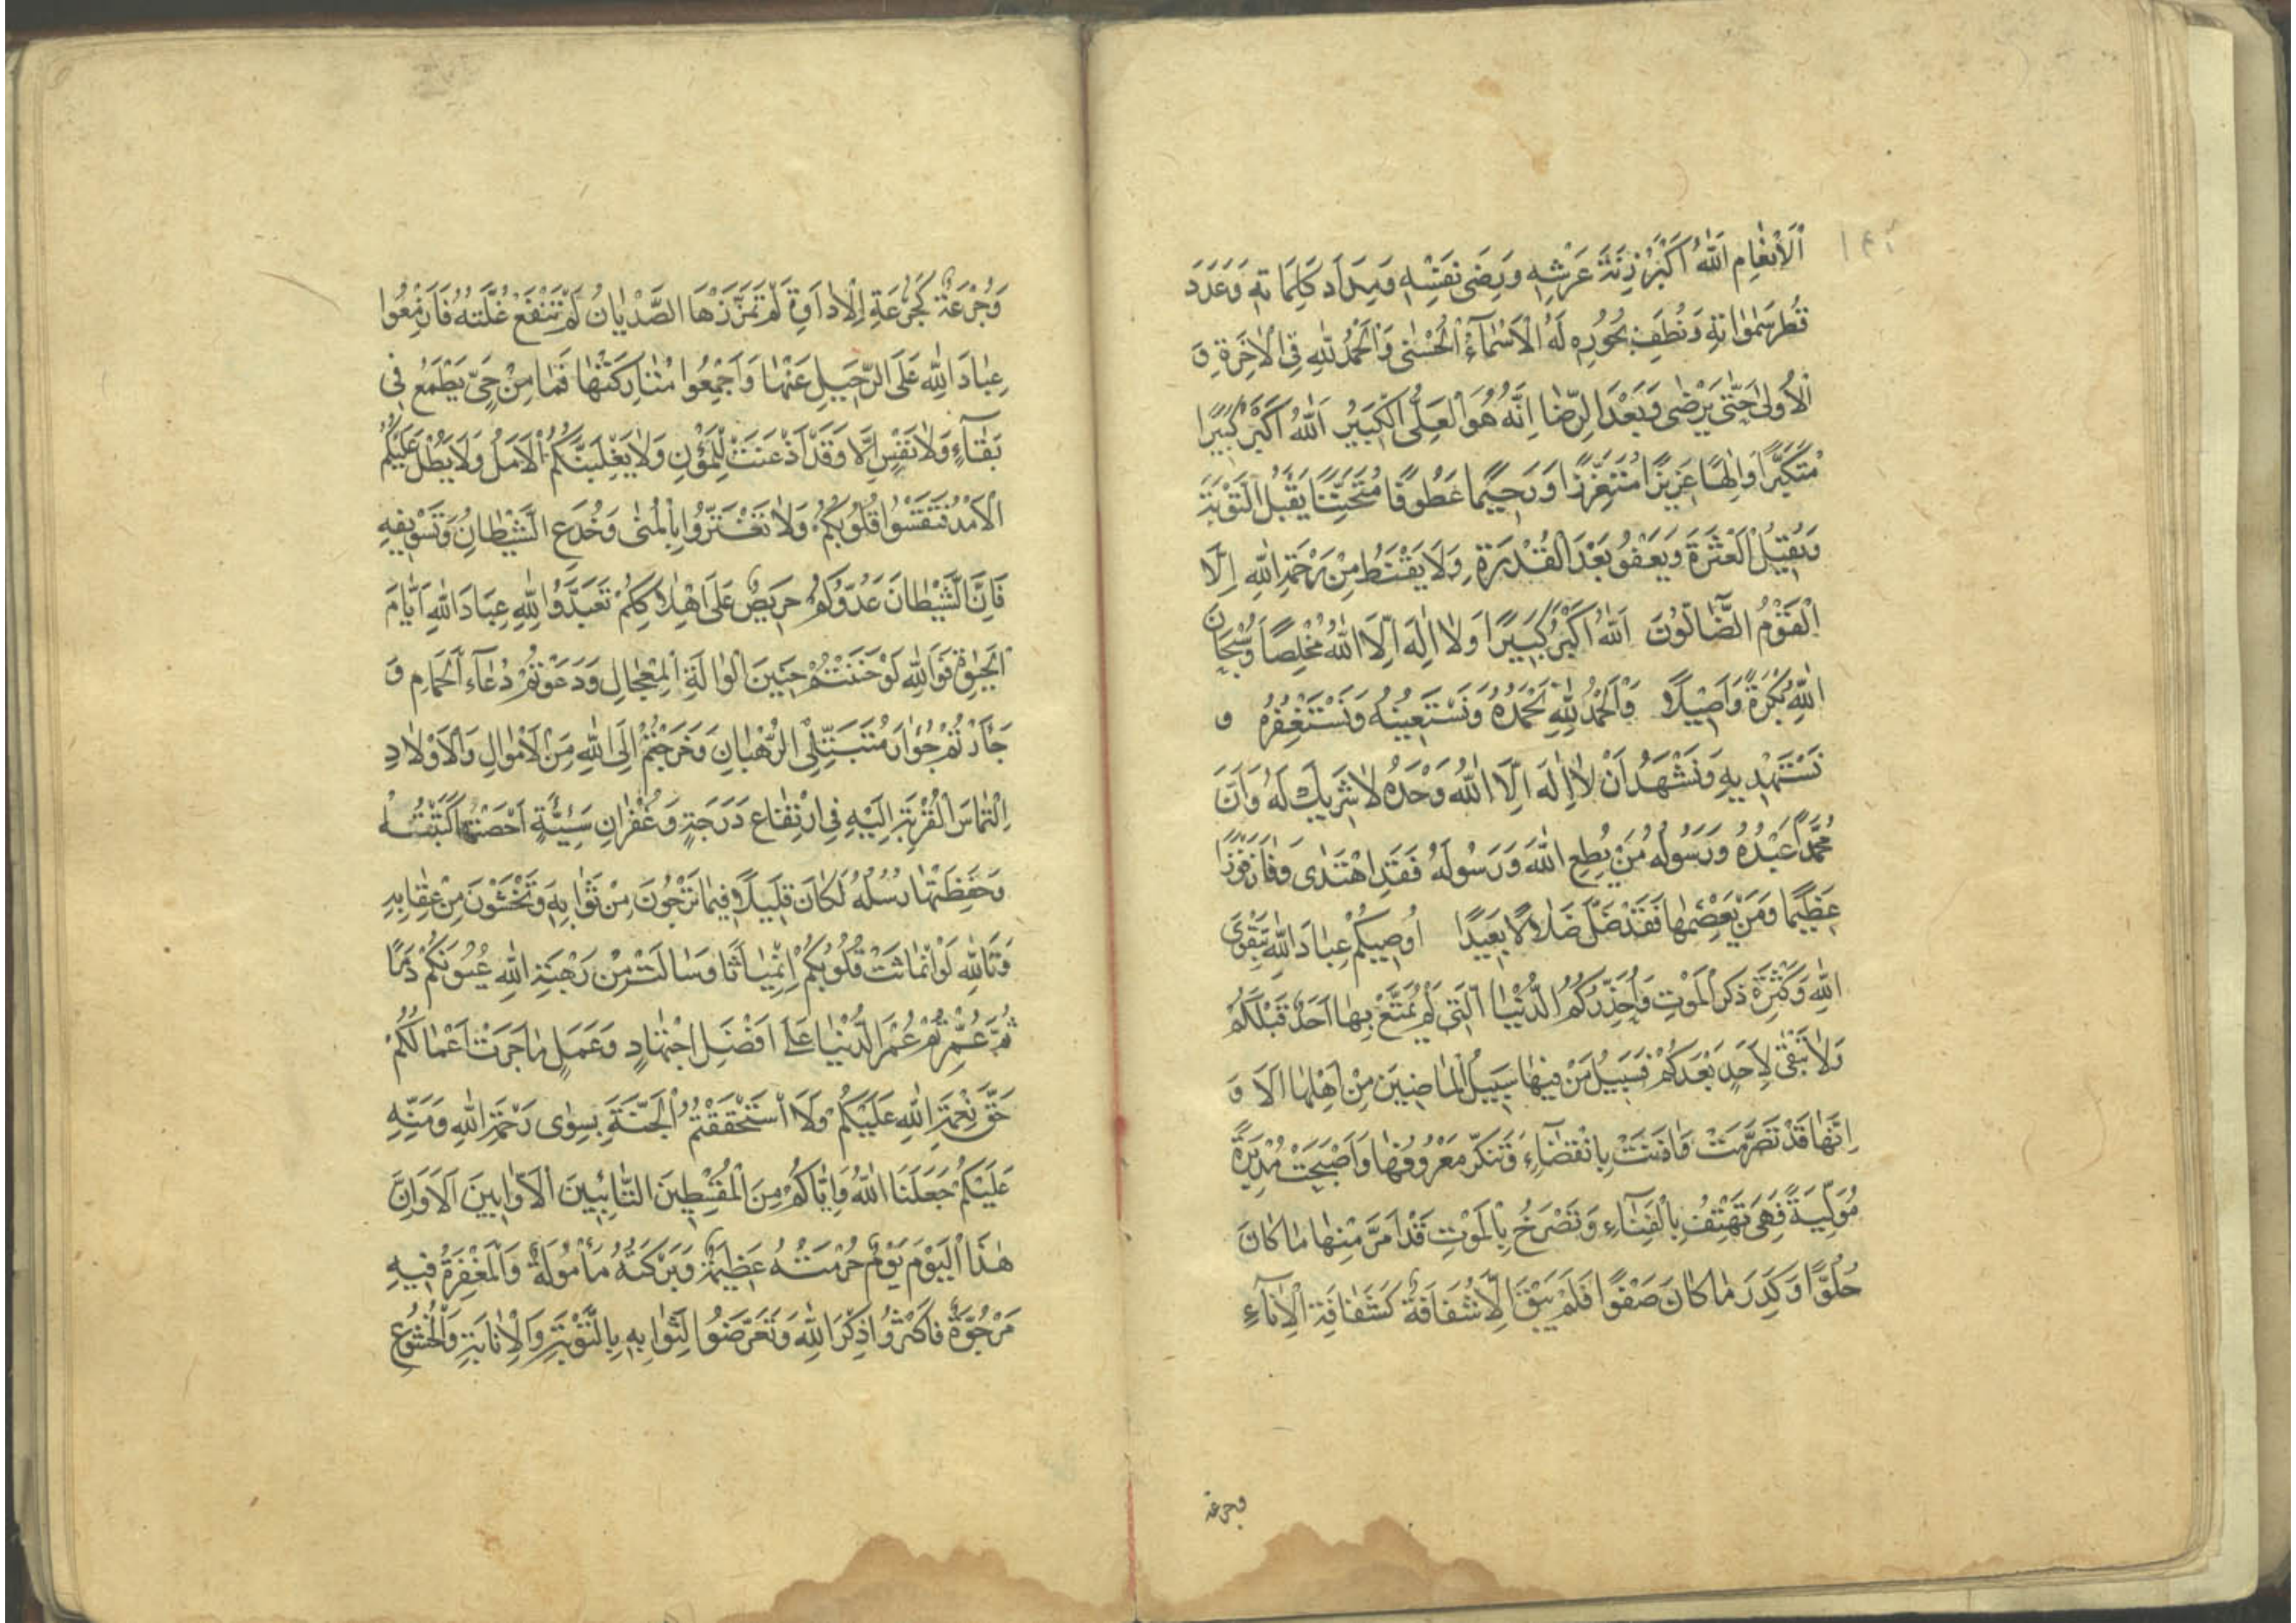 ١٤٢
اَلْاَنْعَامِ اَللّٰهُ اَكْبَرُ زِنَةَ عَرْشِهِ وَرِضٰى نَفْسِهِ وَمِدَادَ كَلِمَاتِهِ وَعَدَدَ
قَطْرِ سَمٰوَاتِهِ وَنُطَفِ بُحُورِهِ لَهُ الْاَسْمَآءُ الْحُسْنٰى وَالْحَمْدُ لِلّٰهِ فِى الْاٰخِرَةِ وَ
الْاُولٰى حَتّٰى يَرْضٰى وَبَعْدَ الرِّضَا اِنَّهُ هُوَ الْعَلِىُّ الْكَبِيْرُ اَللّٰهُ اَكْبَرُ كَبِيْرًا
مُتَكَبِّرًا وَاِلٰهًا عَزِيزًا مُتَعَزِّزًا وَرَحِيْمًا عَطُوفًا مُتَحَنِّنًا يَقْبَلُ التَّوْبَةَ
وَيُقِيْلُ الْعَثْرَةَ وَيَعْفُو بَعْدَ الْقُدْرَةِ وَلَا يَقْنَطُ مِنْ رَحْمَةِ اللّٰهِ اِلَّا
الْقَوْمُ الضَّآلُّونَ اَللّٰهُ اَكْبَرُ كَبِيْرًا وَلَا اِلٰهَ اِلَّا اللّٰهُ مُخْلِصًا وَسُبْحَانَ
اللّٰهِ بُكْرَةً وَاَصِيْلًا وَالْحَمْدُ لِلّٰهِ نَحْمَدُهُ وَنَسْتَعِيْنُهُ وَنَسْتَغْفِرُهُ و
نَسْتَهْدِيهِ وَنَشْهَدُ اَنْ لَا اِلٰهَ اِلَّا اللّٰهُ وَحْدَهُ لَا شَرِيْكَ لَهُ وَاَنَّ
مُحَمَّدًا عَبْدُهُ وَرَسُولُهُ مَنْ يُطِعِ اللّٰهَ وَرَسُولَهُ فَقَدِ اهْتَدٰى وَفَازَ فَوْزًا
عَظِيْمًا وَمَنْ يَعْصِهِمَا فَقَدْ ضَلَّ ضَلَالًا بَعِيْدًا اُوصِيْكُمْ عِبَادَ اللّٰهِ بِتَقْوَى
اللّٰهِ وَكَثْرَةِ ذِكْرِ الْمَوْتِ وَاُحَذِّرُكُمُ الدُّنْيَا الَّتِى لَمْ يُمَتَّعْ بِهَا اَحَدٌ قَبْلَكُمْ
وَلَا تَبْقٰى لِاَحَدٍ بَعْدَكُمْ فَسَبِيْلُ مَنْ فِيْهَا سَبِيْلُ الْمَاضِيْنَ مِنْ اَهْلِهَا اَلَا وَ
اِنَّهَا قَدْ تَصَرَّمَتْ وَاٰذَنَتْ بِانْقِضَآءٍ وَتَنَكَّرَ مَعْرُوفُهَا وَاَصْبَحَتْ مُدْبِرَةً
مُوَلِّيَةً فَهِىَ تَهْتِفُ بِالْفَنَآءِ وَتَصْرَخُ بِالْمَوْتِ قَدْ اَمَرَّ مِنْهَا مَا كَانَ
حُلْوًا وَكَدِرَ مَا كَانَ صَفْوًا فَلَمْ يَبْقَ اِلَّا شُفَافَةٌ كَشَفَافَةِ الْاِنَآءِ
وجرعة
وَجُرْعَةٌ كَجُرْعَةِ الْاِدَاوَةِ لَمْ تَمَزَّزَهَا الصَّدْيَانُ لَمْ تَنْفَعْ غُلَّتَهُ فَاَزْمِعُوا
عِبَادَ اللّٰهِ عَلَى الرَّحِيْلِ عَنْهَا وَاَجْمِعُوا مُتَارَكَتَهَا فَمَا مِنْ حَىٍّ يَطْمَعُ فِى
بَقَآءٍ وَلَا نَفْسٍ اِلَّا وَقَدْ اَذْعَنَتْ لِلْمَنُونِ وَلَا يَغْلِبَنَّكُمُ الْاَمَلُ وَلَا يَطُلْ عَلَيْكُمُ
الْاَمَدُ فَتَقْسُوا قُلُوبُكُمْ وَلَا تَغْتَرُّوا بِالْمُنٰى وَخُدَعِ الشَّيْطَانِ وَتَسْوِيفِهِ
فَاِنَّ الشَّيْطَانَ عَدُوُّكُمْ حَرِيْصٌ عَلَى اِهْلَاكِكُمْ تَعَبَّدُوا لِلّٰهِ عِبَادَ اللّٰهِ اَيَّامَ
الْحَيٰوةِ فَوَاللّٰهِ لَوْ حَنَنْتُمْ حَنِيْنَ الْوَالِهَةِ الْمِعْجَالِ وَدَعَوْتُمْ دُعَآءَ الْحَمَامِ وَ
جَأَرْتُمْ جُؤَارَ مُتَبَتِّلِى الرُّهْبَانِ وَخَرَجْتُمْ اِلَى اللّٰهِ مِنَ الْاَمْوَالِ وَالْاَوْلَادِ
اِلْتِمَاسَ الْقُرْبَةِ اِلَيْهِ فِى ارْتِفَاعِ دَرَجَةٍ وَغُفْرَانِ سَيِّئَةٍ اَحْصَتْهَا كَتَبَتُهُ
وَحَفِظَتْهَا رُسُلُهُ لَكَانَ قَلِيْلًا فِيمَا تَرْجُونَ مِنْ ثَوَابِهِ وَتَخْشَوْنَ مِنْ عِقَابِهِ
وَتَاللّٰهِ لَوِ انْمَاثَتْ قُلُوبُكُمْ اِنْمِيَاثًا وَسَالَتْ مِنْ رَهْبَةِ اللّٰهِ عُيُونُكُمْ دَمًا
ثُمَّ عُمِّرْتُمْ عُمْرَ الدُّنْيَا عَلَى اَفْضَلِ اجْتِهَادٍ وَعَمَلٍ مَا جَزَتْ اَعْمَالُكُمْ
حَقَّ نِعْمَةِ اللّٰهِ عَلَيْكُمْ وَلَا اسْتَحْقَقْتُمُ الْجَنَّةَ بِسِوٰى رَحْمَةِ اللّٰهِ وَمَنِّهِ
عَلَيْكُمْ جَعَلَنَا اللّٰهُ وَاِيَّاكُمْ مِنَ الْمُقْسِطِيْنَ التَّائِبِيْنَ الْاَوَّابِيْنَ اَلَا وَاِنَّ
هٰذَا الْيَوْمَ يَوْمٌ حُرْمَتُهُ عَظِيْمَةٌ وَبَرَكَتُهُ مَأْمُولَةٌ وَالْمَغْفِرَةُ فِيهِ
مَرْجُوَّةٌ فَاَكْثِرُوا ذِكْرَ اللّٰهِ وَتَعَرَّضُوا لِثَوَابِهِ بِالتَّوْبَةِ وَالْاِنَابَةِ وَالْخُشُوعِ